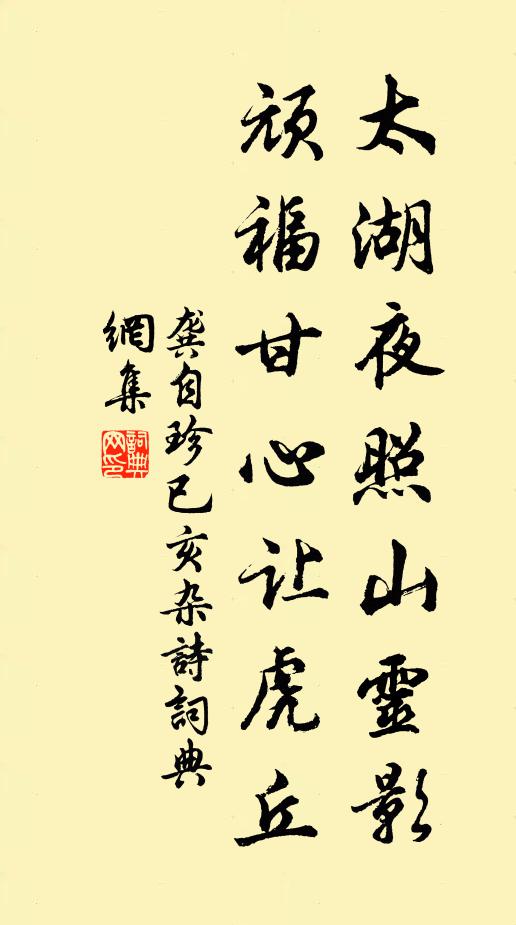 太湖夜照山靈影
頑福甘心让虎丘
龚自珍己亥杂詩詞典
網集
詞典網印